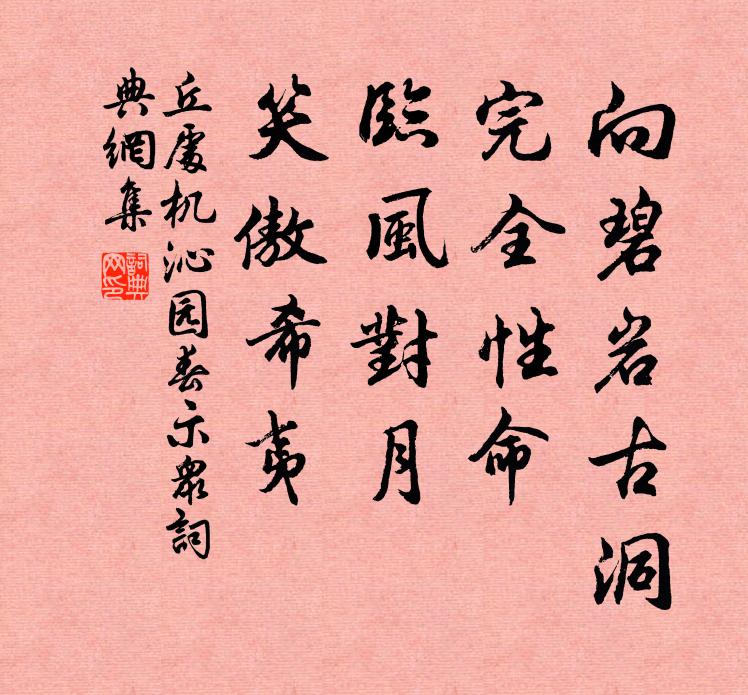 向碧岩古洞
完全性命
臨風對月
笑傲希夷
丘處机沁园春示衆詞
典網集
詞典网印